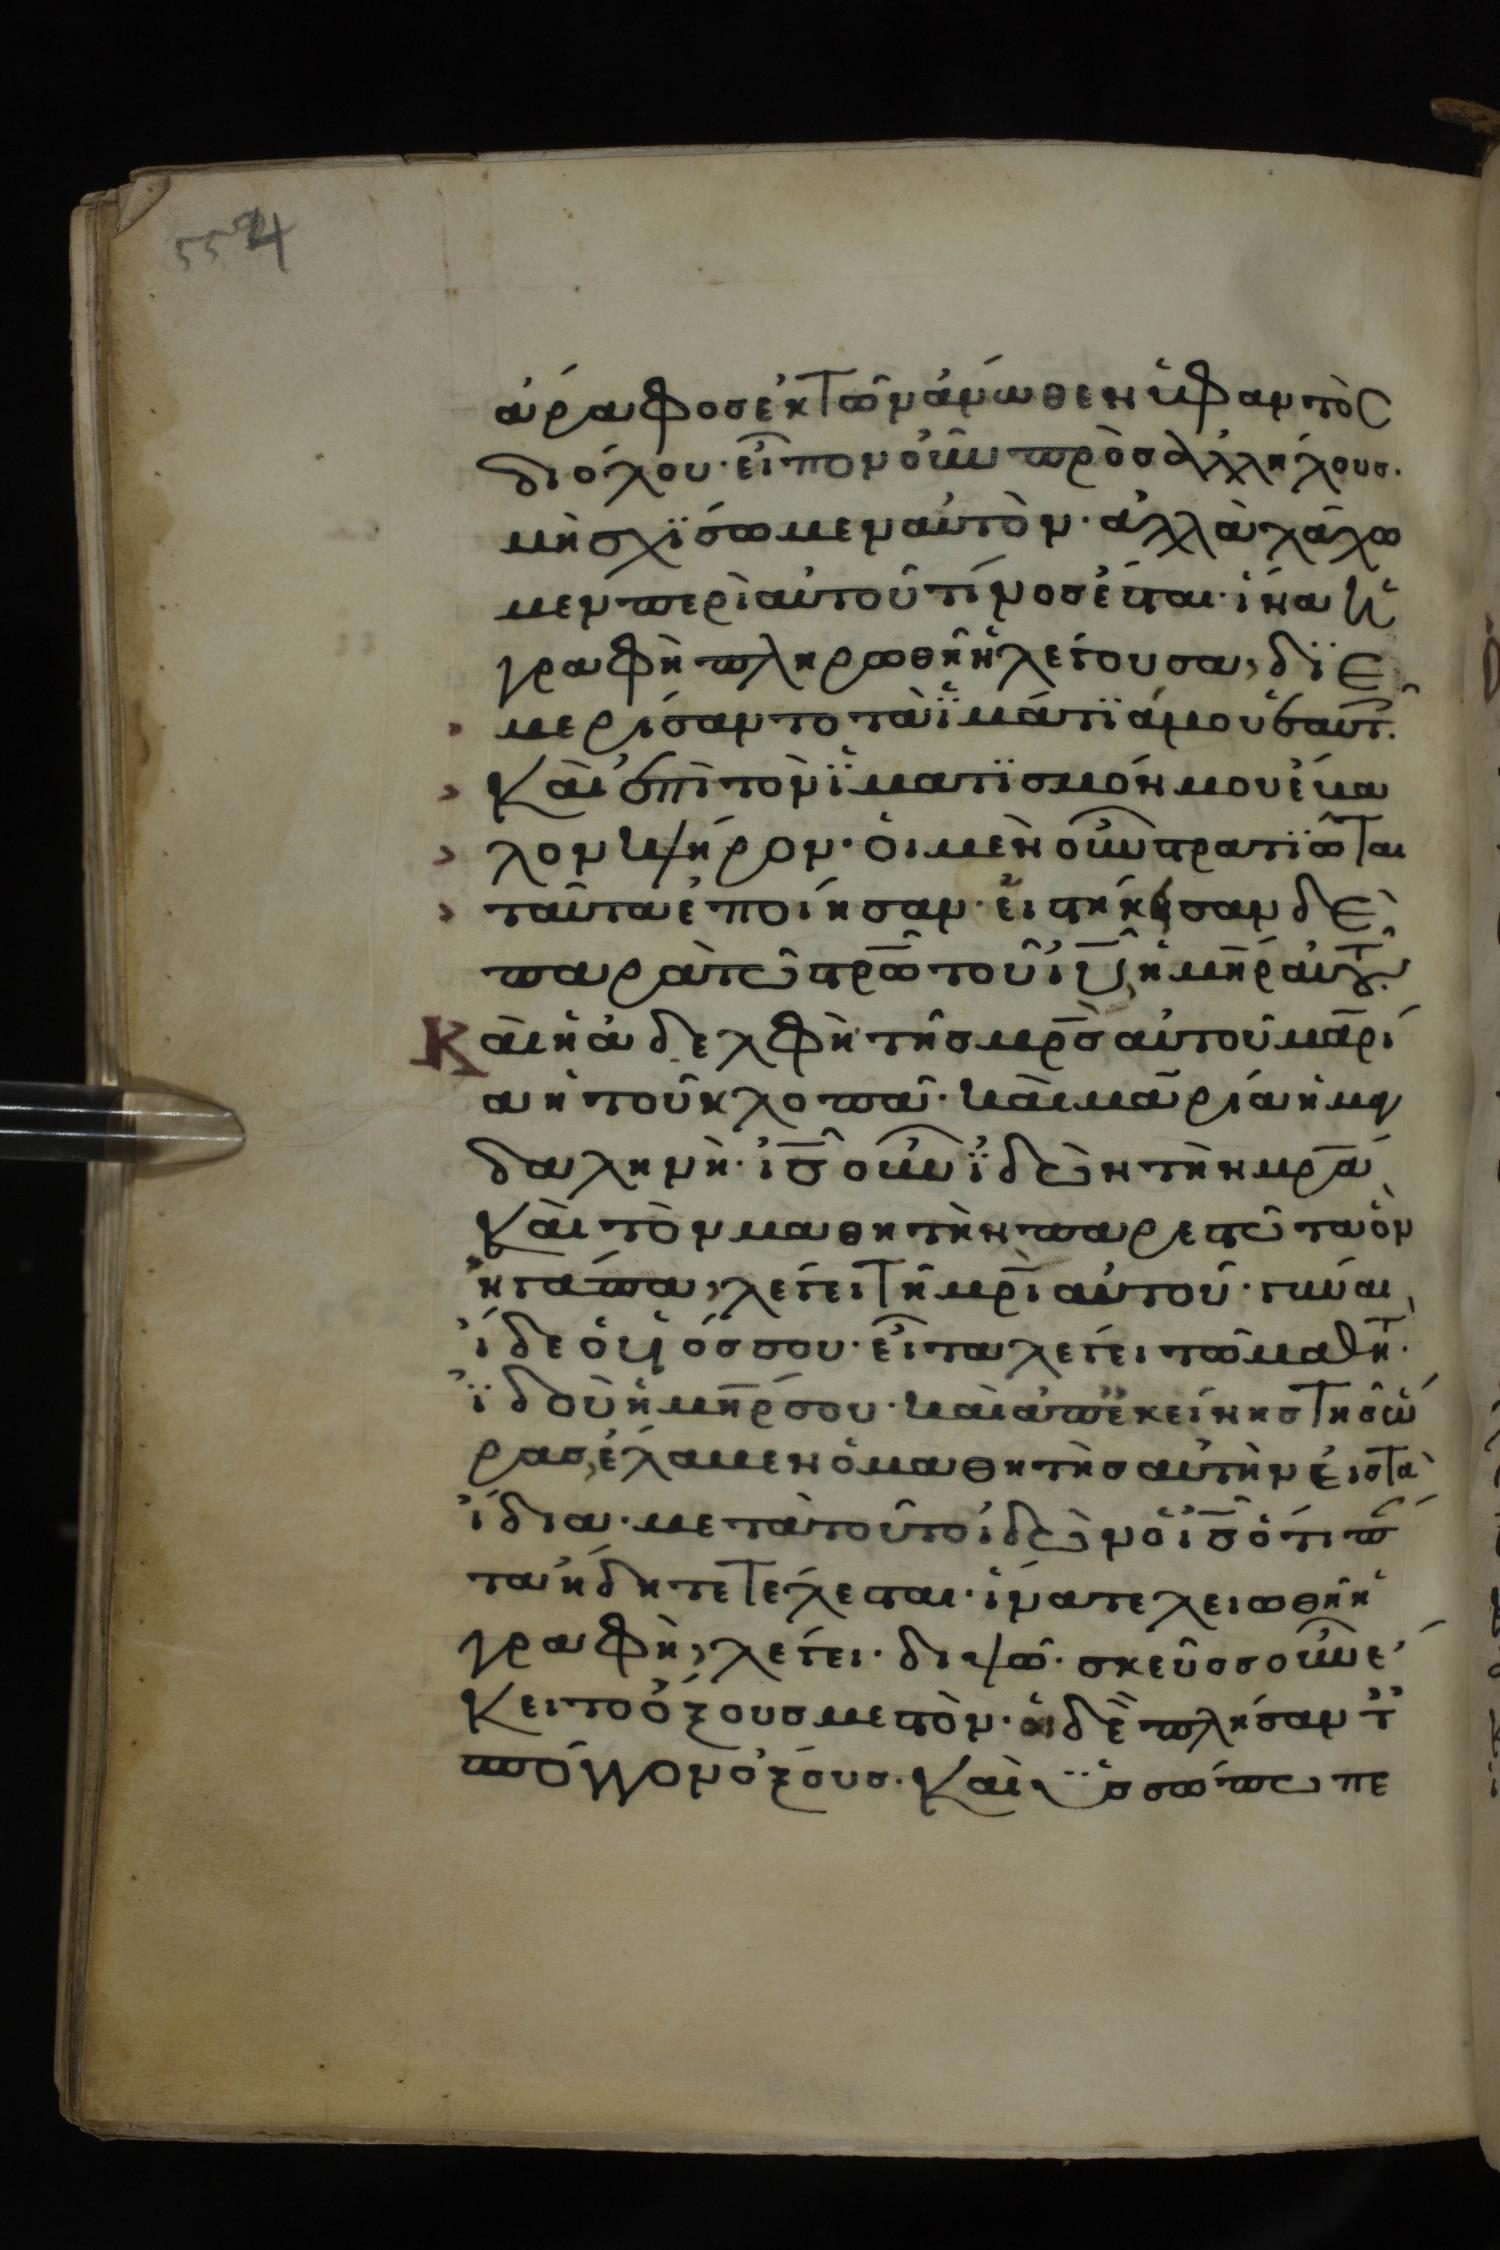 554
ἄραφος ἐκ τῶν ἄνωθεν ὑφαντὸς
διόλου· εἶπον οὖν πρὸς ἀλλήλους·
μὴ σχΐσωμεν αὐτὸν· ἀλλὰ λάχω
μεν περὶ αὐτοῦ τίνος ἔσται· ἵνα ἡ
γραφὴ πληρωθῆ ἡ λέγουσα, δϊε
μερίσαντο τὰ ἱμάτϊά μου ἑαυτ.
Καὶ ἐπὶ τὸν ἱματϊσμόν μου ἔβα
λον κλῆρον· οἱ μὲν οὖν στρατϊῶται
ταῦτα ἐποίησαν· εἱστήκησαν δὲ
παρὰ τῶ στρω τοῦ ἰυ, ἡ μηρ αὐτ.
Καὶ ἡ ἀδελφὴ τῆς μρς αὐτοῦ μαρί
α ἡ τοῦ κλοπᾶ· καὶ μαρία ἡ μα
δαληνὴ· ις οὖν ἰδὼν τὴν μρα
Καὶ τὸν μαθητὴν παρεστῶτα ὃν
ἠγάπα, λέγει τῆ μρι αὐτοῦ· γύναι,
ἴδε ὁ υἱός σου· εἶτα λέγει τῶ μαθητ.
ἰδοὺ ἡ μηρ σου· καὶ ἀπ' ἐκείνης τῆς ὥ
ρας, ἔλαβεν ὁ μαθητὴς αὐτὴν εἰς τὰ
ἴδια· μετὰ τοῦτο ἰδὼν ὁ ις ὅτι πά
τα ἤδη τετέλεσται· ἵνα τελειωθῆ ἡ
γραφὴ, λέγει· διψῶ· σκεῦος οὖν ἔ
Κειτο ὄξους μεστὸν· οἱ δὲ πλήσαντ
σπόγγον ὄξους· Καὶ ὑσσώπω πε